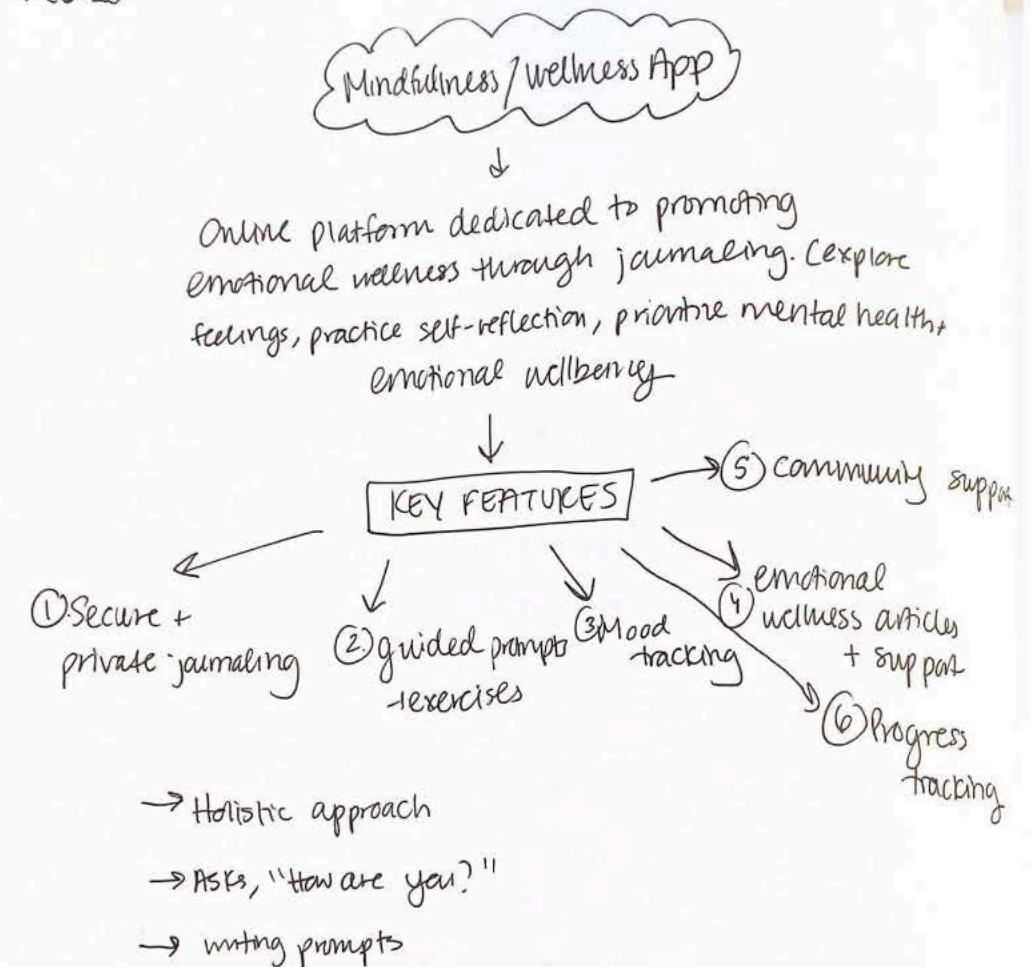 Mindfulness/wellness App
Online platform dedicated to promoting
emotional wellness through journaling. (explore
feelings, practice self-reflection, prioritize mental health +
emotional wellbeing
KEY FEATURES
① Secure +
private journaling
② guided prompts
+ exercises
③ Mood
tracking
④ emotional
wellness articles
+ support
⑤ community support
⑥ Progress
tracking
→ Holistic approach
→ Asks, "How are you?"
→ writing prompts